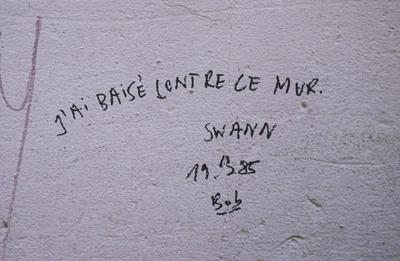 J'Ai BAISÉ CONTRE CE MUR.
SWANN
Bob